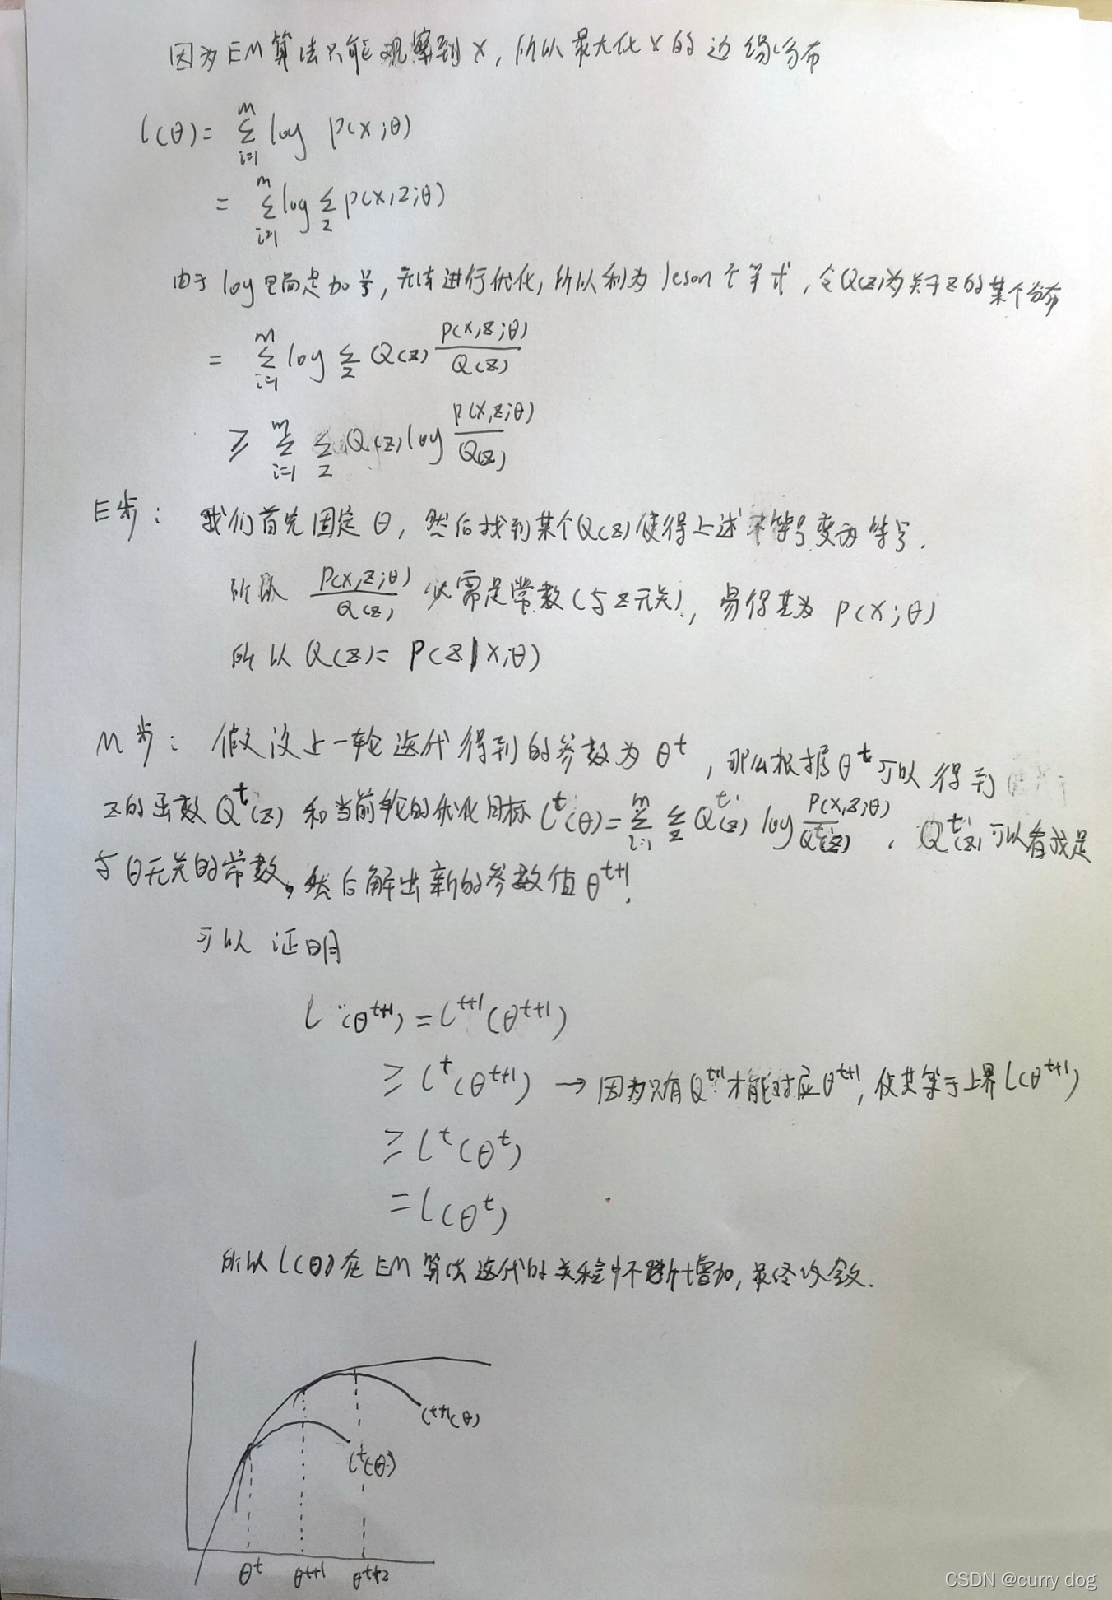 因为EM算法只能观察到X，所以最大化X的边缘分布
l(θ)= Σ_{i=1}^{m} log p(x;θ)
= Σ_{i=1}^{m} log Σ_z p(x,z;θ)
由于log里面是加号，无法进行优化，所以利为Jeson不等式，令Q(z)为关于z的某个分布
= Σ_{i=1}^{m} log Σ_z Q(z) p(x,z;θ)/Q(z)
≥ Σ_{i=1}^{m} Σ_z Q(z) log p(x,z;θ)/Q(z)
E步：我们首先固定θ，然后找到某个Q(z)使得上述不等号变为等号.
所以 p(x,z;θ)/Q(z) 必需是常数(与z无关)，易得其为 p(x;θ)
所以 Q(z)= p(z|x;θ)
M步：假设上一轮迭代得到的参数为θ^t，那么根据θ^t可以得到
z的函数Q^t(z) 和当前轮的优化目标 l^t(θ)= Σ_{i=1}^{m} Σ_z Q^t(z) log p(x,z;θ)/Q^t(z) . Q^t(z)可以看成是
与θ无关的常数。然后解出新的参数值θ^{t+1}.
可以证明
l(θ^{t+1}) = l^{t+1}(θ^{t+1})
≥ l^t(θ^{t+1}) → 因为只有Q^{t+1}才能对应θ^{t+1}，使其等于上界l(θ^{t+1})
≥ l^t(θ^t)
= l(θ^t)
所以l(θ)在EM算法迭代的过程中不断增加，最终收敛.
l^{t+1}(θ)
l^t(θ)
θ^t θ^{t+1} θ^{t+2}
CSDN @curry dog